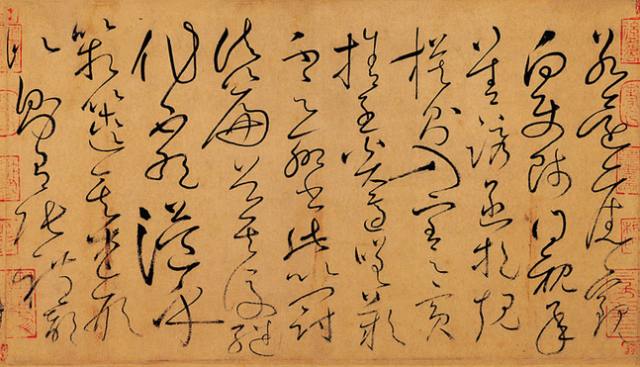 若還舊觀
向使師得親承
善誘函挹規
模則入室之賓
捨子奚適嗟歎
不足聊書此以冠
諸篇首其後繼
作不絕溢乎
箱篋其述形
似則有張禮部